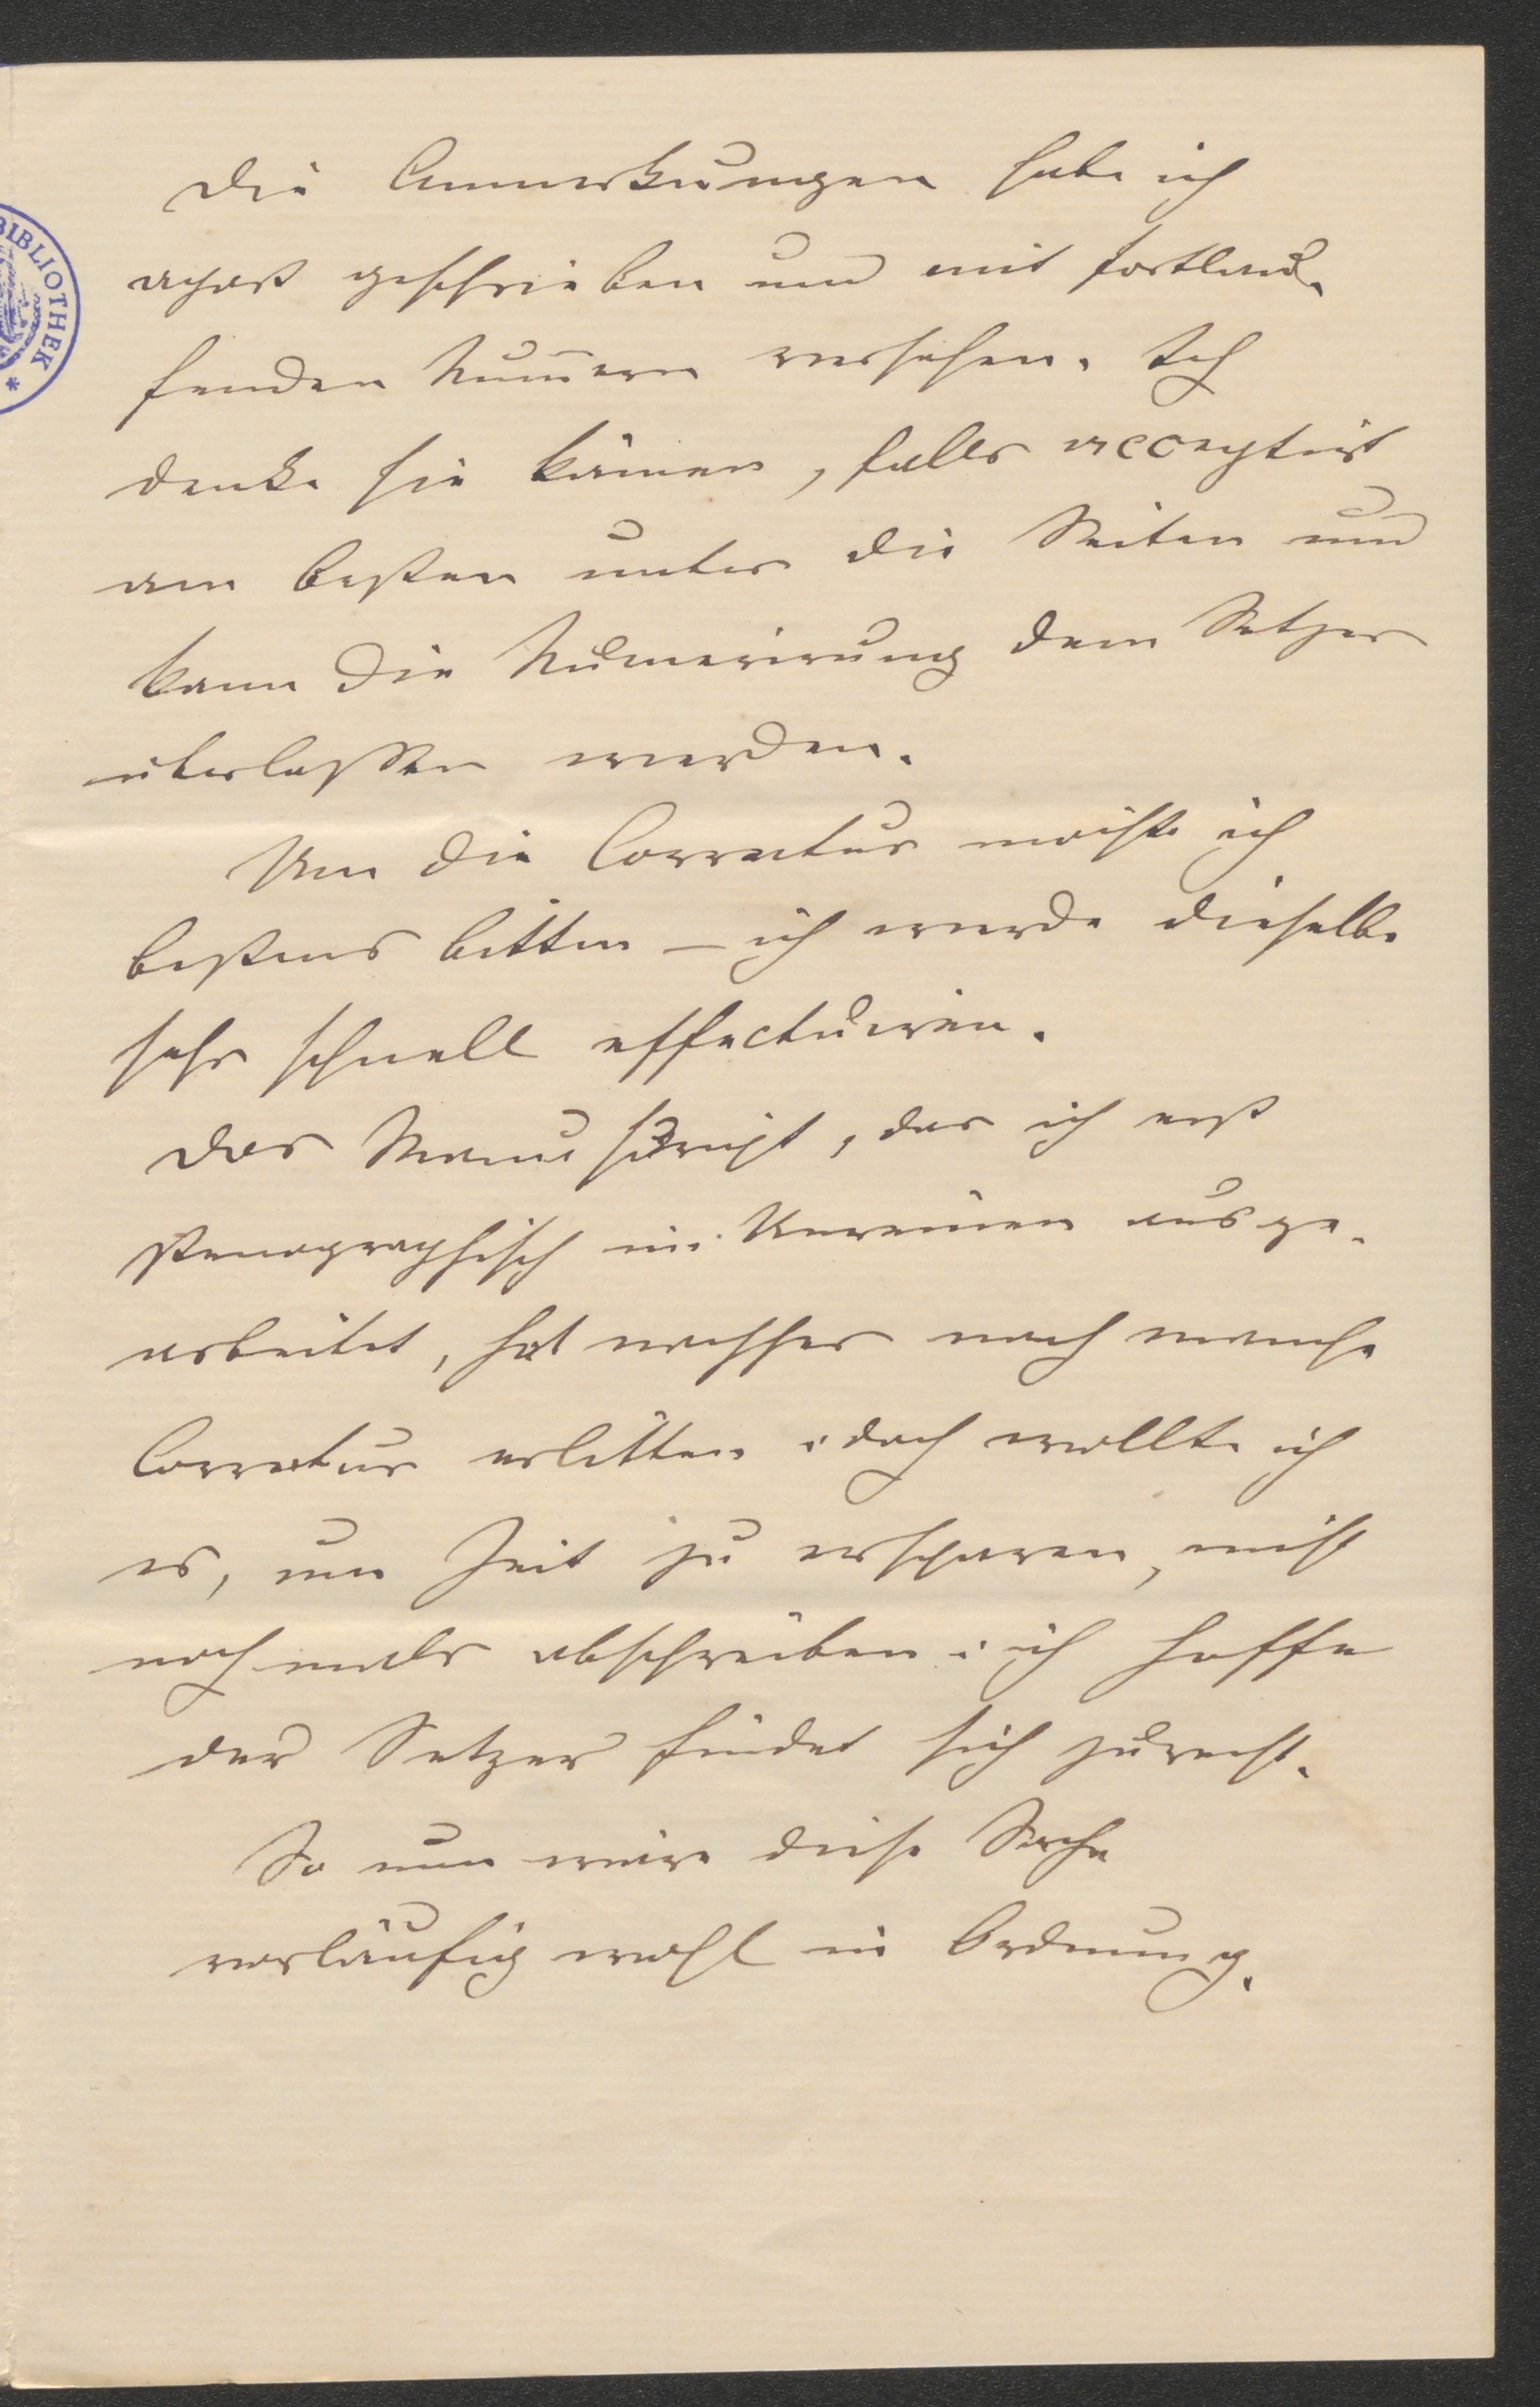 BIBLIOTHEK *
Die Anmerkungen habe ich
apart geschrieben und mit fortlau-
fenden Num̄ern versehen. Ich
denke sie kämen, falls acceptirt
am besten unter die Seiten und
kann die Numerirung dem Setzer
überlassen werden.
Um die Correctur möchte ich
bestens bitten – ich werde dieselbe
sehr schnell effectuiren.
Das Manuscript, das ich erst
stenographisch im Unreinen ausge-
arbeitet, hat nachher noch manche
Correctur erlitten, doch wollte ich
es, um Zeit zu ersparen, nicht
nochmals abschreiben: ich hoffe
der Setzer findet sich zurecht.
So nun wäre diese Sache
vorläufig wohl in Ordnung.